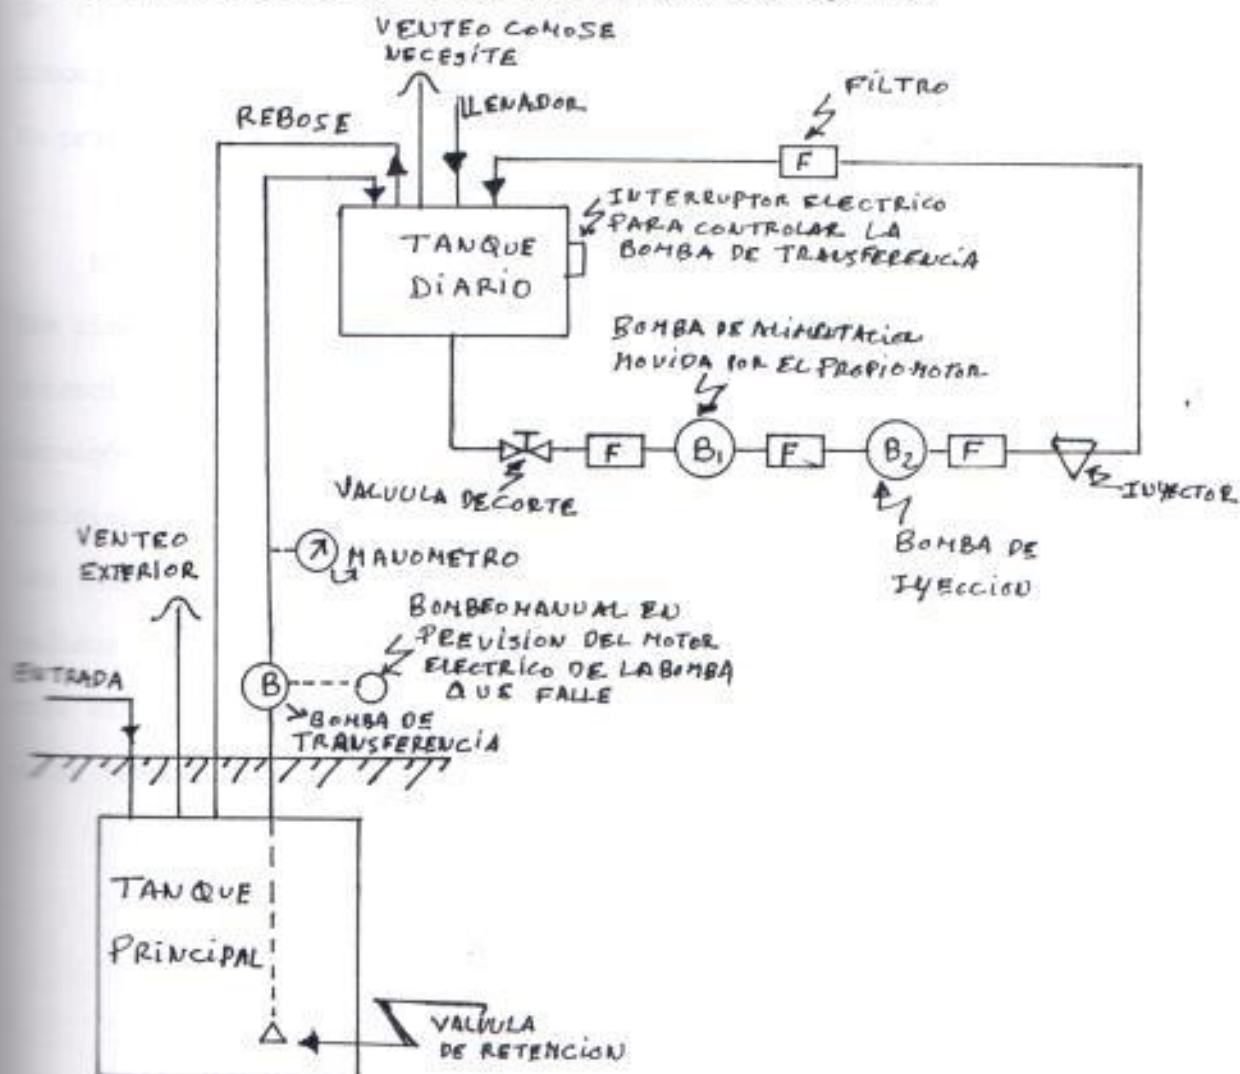 VENTEO COMO SE
NECESITE
FILTRO
LLENADOR
REBOSE
F
INTERRUPTOR ELECTRICO
PARA CONTROLAR LA
BOMBA DE TRANSFERENCIA
TANQUE
DIARIO
BOMBA DE ALIMENTACION
MOVIDA POR EL PROPIO MOTOR
F
B1
F
B2
F
VALVULA DE CORTE
INYECTOR
BOMBA DE
IYECCION
VENTEO
EXTERIOR
MANOMETRO
BOMBEO MANUAL EN
PREVISION DEL MOTOR
ELECTRICO DE LA BOMBA
QUE FALLE
ENTRADA
B
BOMBA DE
TRANSFERENCIA
TANQUE
PRINCIPAL
VALVULA
DE RETENCION